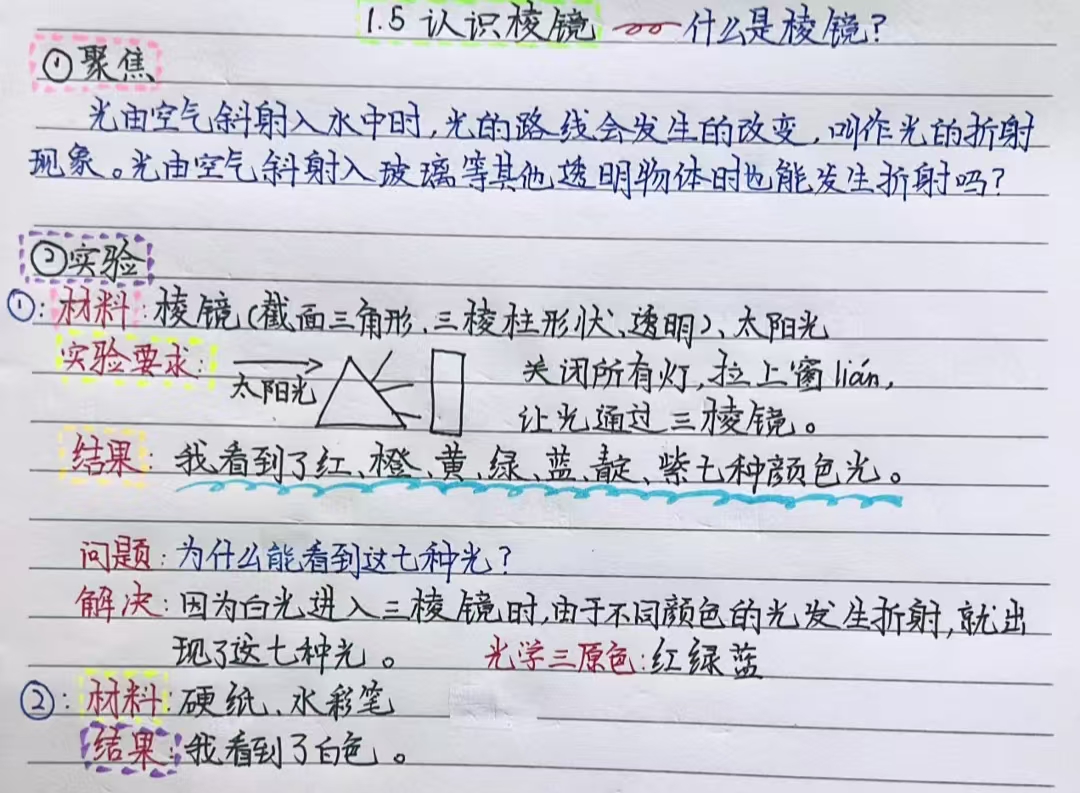 1.5 认识棱镜 什么是棱镜?
①聚焦
光由空气斜射入水中时,光的路线会发生的改变,叫作光的折射
现象。光由空气斜射入玻璃等其他透明物体时也能发生折射吗?
②实验
①:材料:棱镜(截面三角形、三棱柱形状、透明)、太阳光
实验要求:
太阳光
关闭所有灯,拉上窗lián,
让光通过三棱镜。
结果:我看到了红、橙、黄、绿、蓝、靛、紫七种颜色光。
问题:为什么能看到这七种光?
解决:因为白光进入三棱镜时,由于不同颜色的光发生折射,就出
现了这七种光。 光学三原色:红绿蓝
②:材料:硬纸、水彩笔
结果:我看到了白色。